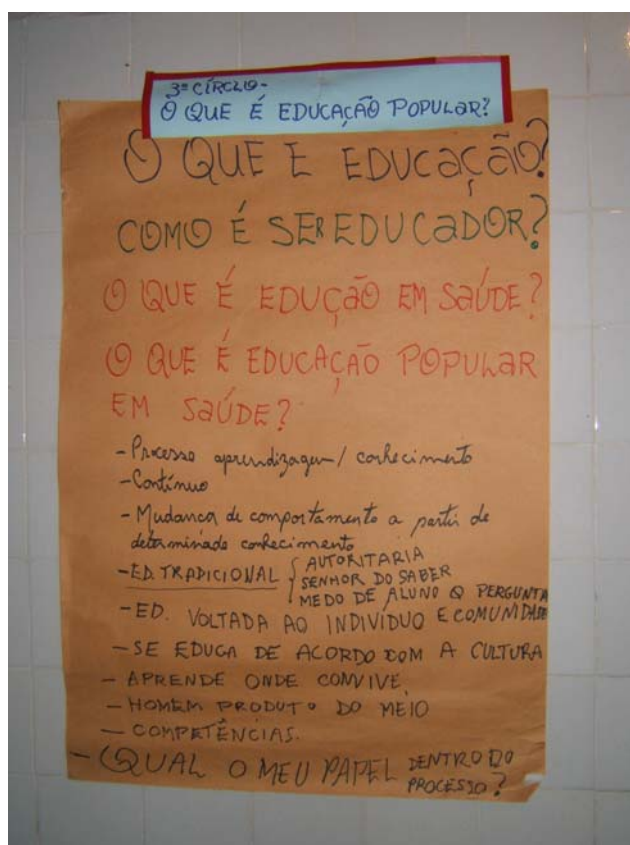 3º CÍRCLIO-
O QUE É EDUCAÇÃO POPULAR?
O QUE E EDUCAÇÃO?
COMO É SER EDUCADOR?
O QUE É EDUÇÃO EM SAÚDE?
O QUE É EDUCAÇÃO POPULAR
EM SAÚDE?
-Processo aprendizagem/conhecimento
-Contínuo
-Mudança de comportamento a partir de
determinado conhecimento
-ED. TRADICIONAL { AUTORITARIA
SENHOR DO SABER
MEDO DE ALUNO Q PERGUNTA
-ED. VOLTADA AO INDIVIDUO E COMUNIDADE
-SE EDUCA DE ACORDO COM A CULTURA
- APRENDE ONDE CONVIVE.
-HOMEM PRODUTO DO MEIO
-COMPETÊNCIAS.
-QUAL O MEU PAPEL DENTRO DO
PROCESSO?